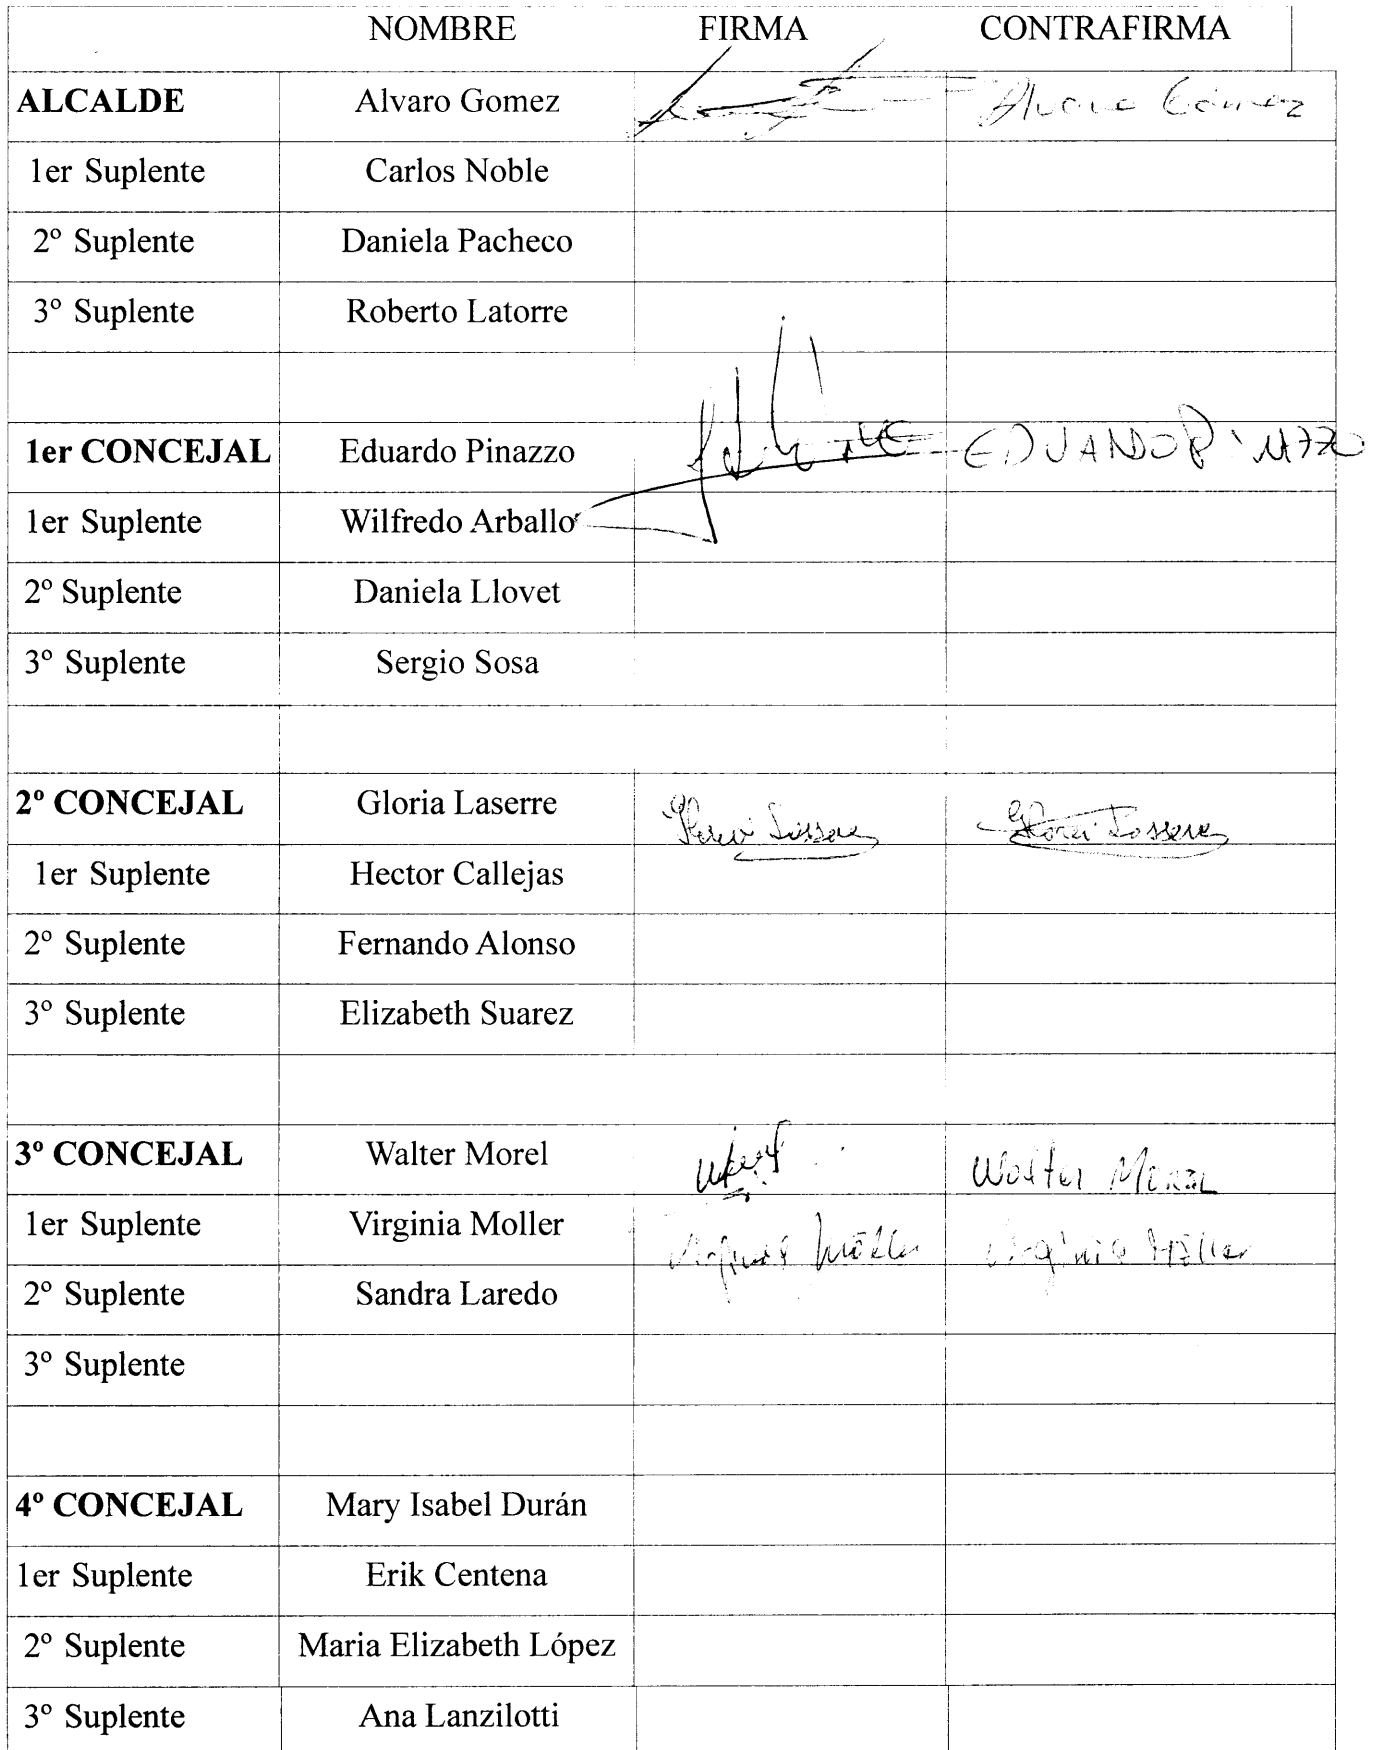 NOMBRE FIRMA CONTRAFIRMA
ALCALDE Alvaro Gomez Alvaro Gómez
1er Suplente Carlos Noble
2º Suplente Daniela Pacheco
3º Suplente Roberto Latorre
1er CONCEJAL Eduardo Pinazzo EDUARDO PINAZZO
1er Suplente Wilfredo Arballo
2º Suplente Daniela Llovet
3º Suplente Sergio Sosa
2º CONCEJAL Gloria Laserre Gloria Lassere Gloria Lassere
1er Suplente Hector Callejas
2º Suplente Fernando Alonso
3º Suplente Elizabeth Suarez
3º CONCEJAL Walter Morel Walter Morel
1er Suplente Virginia Moller Virginia Möller Virginia Möller
2º Suplente Sandra Laredo
3º Suplente
4º CONCEJAL Mary Isabel Durán
1er Suplente Erik Centena
2º Suplente Maria Elizabeth López
3º Suplente Ana Lanzilotti